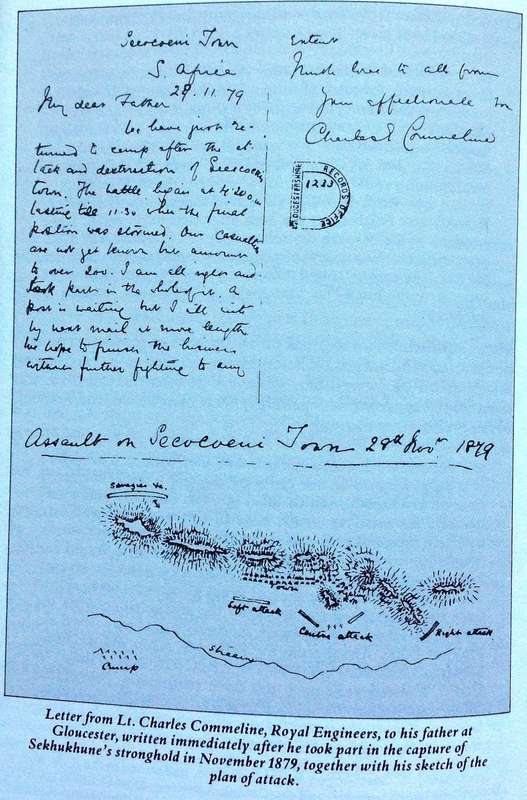 Secocoeni Town
S. Africa
28.11.79
My dear Father
We have just re-
turned to camp after the at
tack and destruction of Secocoeni
town. The battle began at 4.20 am
lasting till 11.30 when the final
position was stormed. Our casualties
are not yet known but amount
to over 200. I am all right and
took part in the whole of it. A
post is waiting but I will write
by next mail at more length
We hope to finish the business
without further fighting to any
Extent
Much love to all from
Your affectionate son
Charles E Commeline
GLOUCESTERSHIRE
RECORDS OFFICE
1233
Assault on Secocoeni Town 28th Novr 1879
Swazies &c.
Town
Left attack
Centre attack
Right attack
Stream
Camp
Letter from Lt. Charles Commeline, Royal Engineers, to his father at
Gloucester, written immediately after he took part in the capture of
Sekhukhune's stronghold in November 1879, together with his sketch of the
plan of attack.